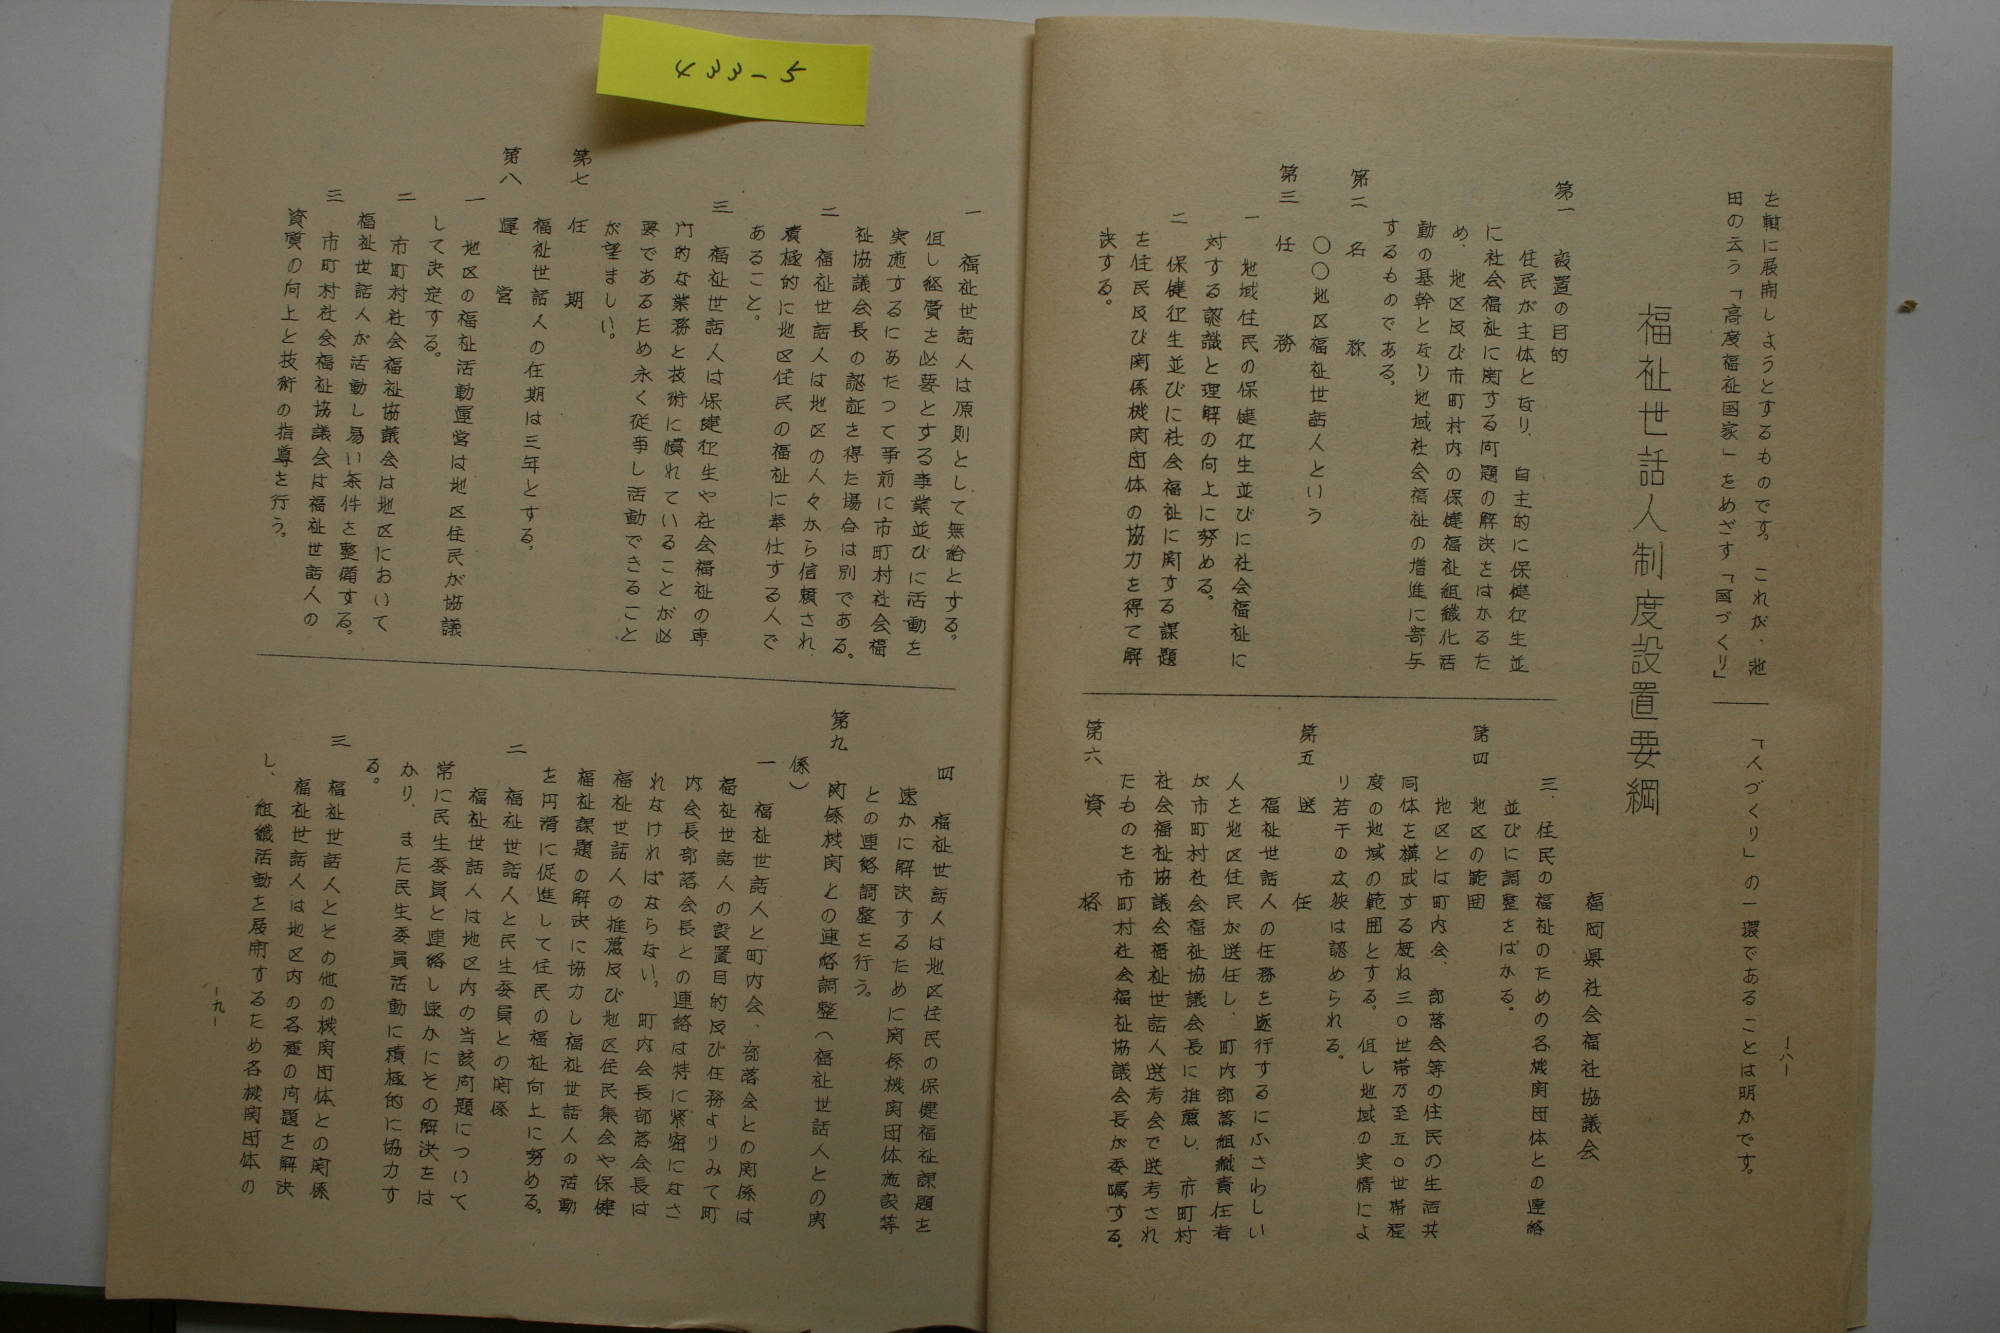 433-5
を軸に展開しようとするものです。これが、池
田の云う「高度福祉国家」をめざす「国づくり」
「人づくり」の一環であることは明かです。
福祉世話人制度設置要綱
福岡県社会福祉協議会
第一 設置の目的
住民が主体となり、自主的に保健衛生並
に社会福祉に関する問題の解決をはかるた
め、地区及び市町村内の保健福祉組織化活
動の基幹となり地域社会福祉の増進に寄与
するものである。
第二 名称
〇〇地区福祉世話人という
第三 任務
一 地域住民の保健衛生並びに社会福祉に
対する認識と理解の向上に努める。
二 保健衛生並びに社会福祉に関する課題
を住民及び関係機関団体の協力を得て解
決する。
三、住民の福祉のための各機関団体との連絡
並びに調整をはかる。
第四 地区の範囲
地区とは町内会、部落会等の住民の生活共
同体を構成する概ね三〇世帯乃至五〇世帯程
度の地域の範囲とする。但し地域の実情によ
り若干の広狭は認められる。
第五 送任
福祉世話人の任務を遂行するにふさわしい
人を地区住民が送任し、町内部落組織責任者
が市町村社会福祉協議会長に推薦し、市町村
社会福祉協議会福祉世話人送考会で送考され
たものを市町村社会福祉協議会長が委嘱する。
第六 資格
―八―
一 福祉世話人は原則として無給とする。
但し経費を必要とする事業並びに活動を
実施するにあたつて事前に市町村社会福
祉協議会長の認証を得た場合は別である。
二 福祉世話人は地区の人々から信頼され、
積極的に地区住民の福祉に奉仕する人で
あること。
三 福祉世話人は保健衛生や社会福祉の専
門的な業務と技術に慣れていることが必
要であるため永く従事し活動できること
が望ましい。
第七 任期
福祉世話人の任期は三年とする。
第八 運営
一 地区の福祉活動運営は地区住民が協議
して決定する。
二 市町村社会福祉協議会は地区において
福祉世話人が活動し易い条件を整備する。
三 市町村社会福祉協議会は福祉世話人の
資質の向上と技術の指導を行う。
四 福祉世話人は地区住民の保健福祉課題を
速かに解決するために関係機関団体施設等
との連絡調整を行う。
第九 関係機関との連絡調整(福祉世話人との関
係)
一 福祉世話人と町内会、部落会との関係は
福祉世話人の設置目的及び任務よりみて町
内会長部落会長との連絡は特に緊密になさ
れなければならない。町内会長部落会長は
福祉世話人の推薦及び地区住民集会や保健
福祉課題の解決に協力し福祉世話人の活動
を円滑に促進して住民の福祉向上に努める。
二 福祉世話人と民生委員との関係
福祉世話人は地区内の当該問題について
常に民生委員と連絡し速かにその解決をは
かり、また民生委員活動に積極的に協力す
る。
三 福祉世話人とその他の機関団体との関係
福祉世話人は地区内の各種の問題を解決
し、組織活動を展開するため各機関団体の
―九―